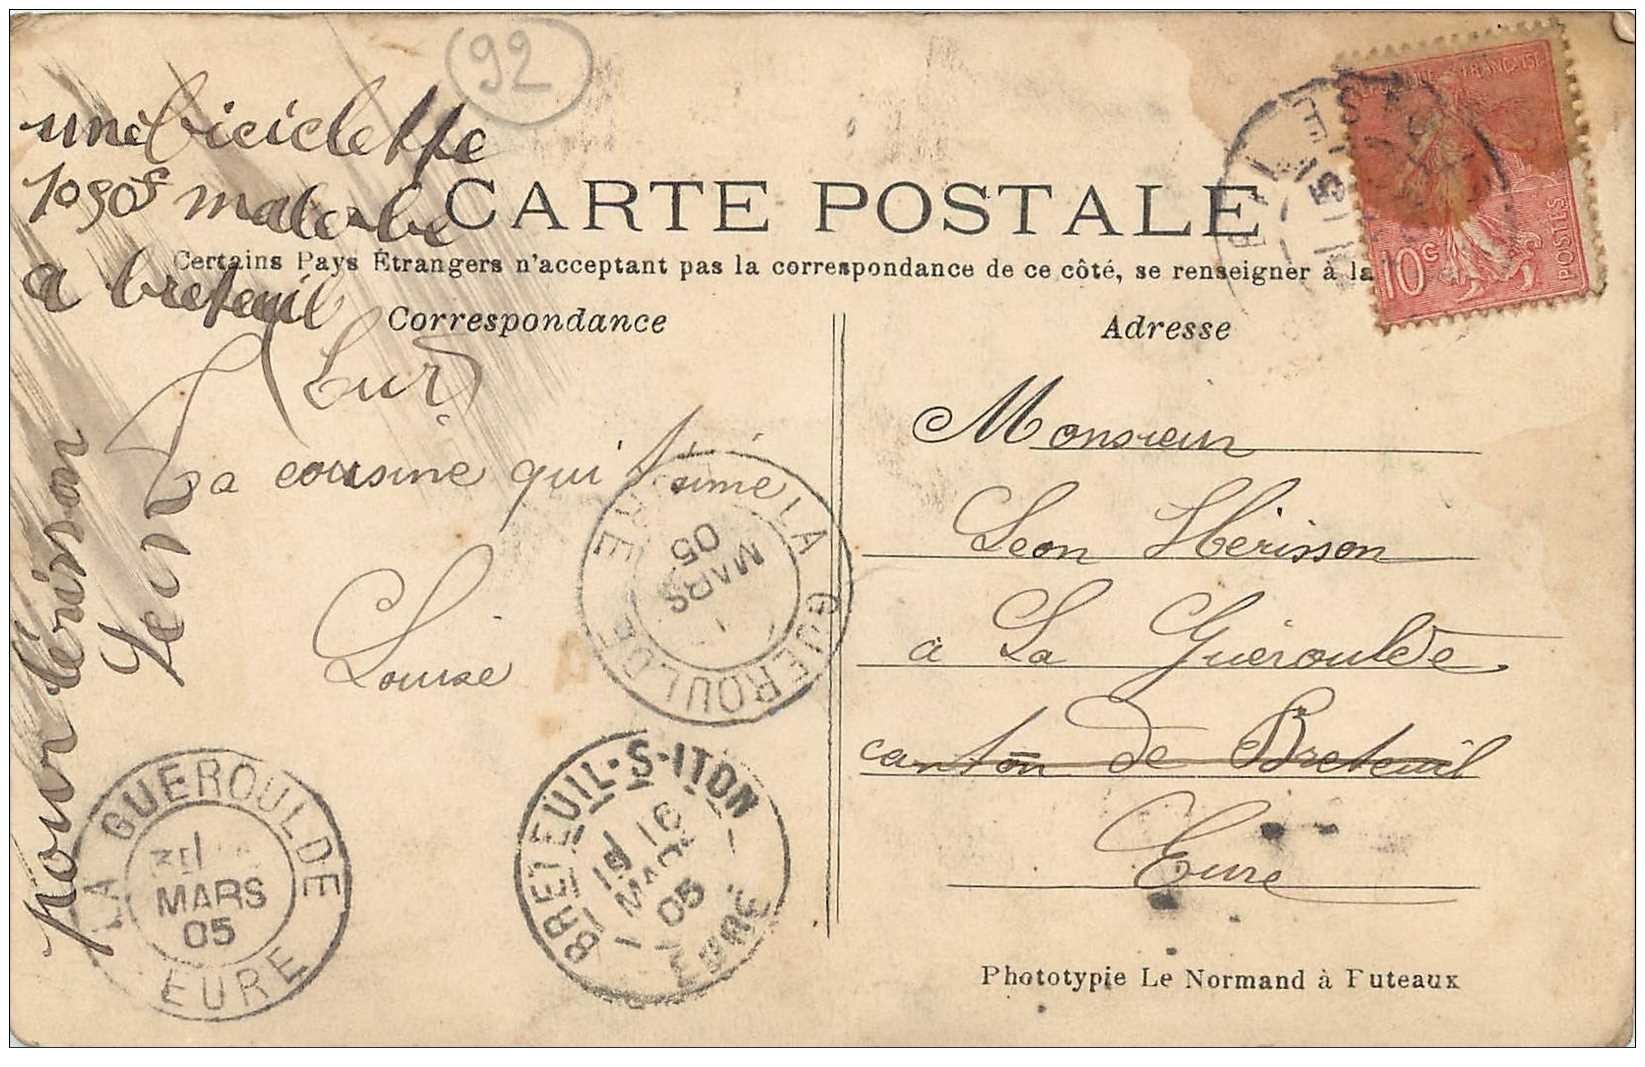 92
une biciclette
CARTE POSTALE
a breteuil
Certains Pays Étrangers n'acceptant pas la correspondance de ce côté, se renseigner à la
Correspondance
Adresse
(Eur)
Ta cousine qui t'aime
Louise
pour lérisson
Leon
Monsieur
Leon Hérisson
à La Guéroulde
canton de Breteuil
Eure
Phototypie Le Normand à Puteaux
10c
POSTES
LA GUEROULDE
MARS
05
LA GUEROULDE
MARS
05
EURE
BRETEUIL-S-ITON
16
MARS
05
EURE